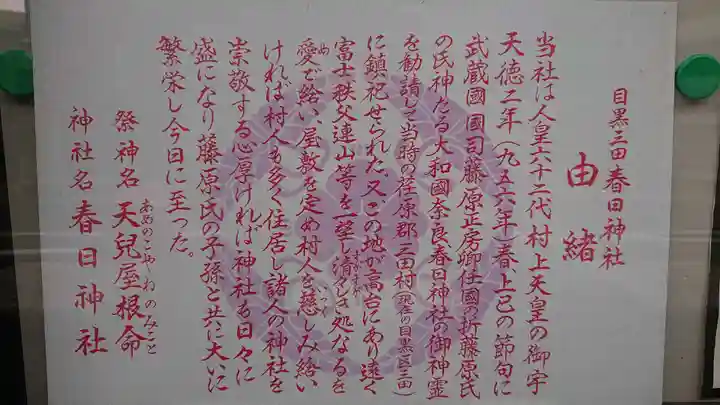 目黒三田春日神社
由緒
当社は人皇六十二代村上天皇の御宇
天徳二年(九五六年)春上巳の節句に
武蔵國國司藤原正房卿任國の折藤原氏
の氏神たる大和國奈良春日神社の御神霊
を勧請して当時の荏原郡三田村(現在の目黒区三田)
に鎮祀せられた又この地が高台にあり遠く
富士秩父連山等を一望し清々しき処なるを
愛で給い屋敷を定め村人を慈しみ給い
ければ村人も多く住居し諸人の神社を
崇敬する心厚ければ神社も日々に
盛になり藤原氏の子孫と共に大いに
繁栄し今日に至った。
祭神名 天兒屋根命
あめのこやねのみこと
神社名 春日神社